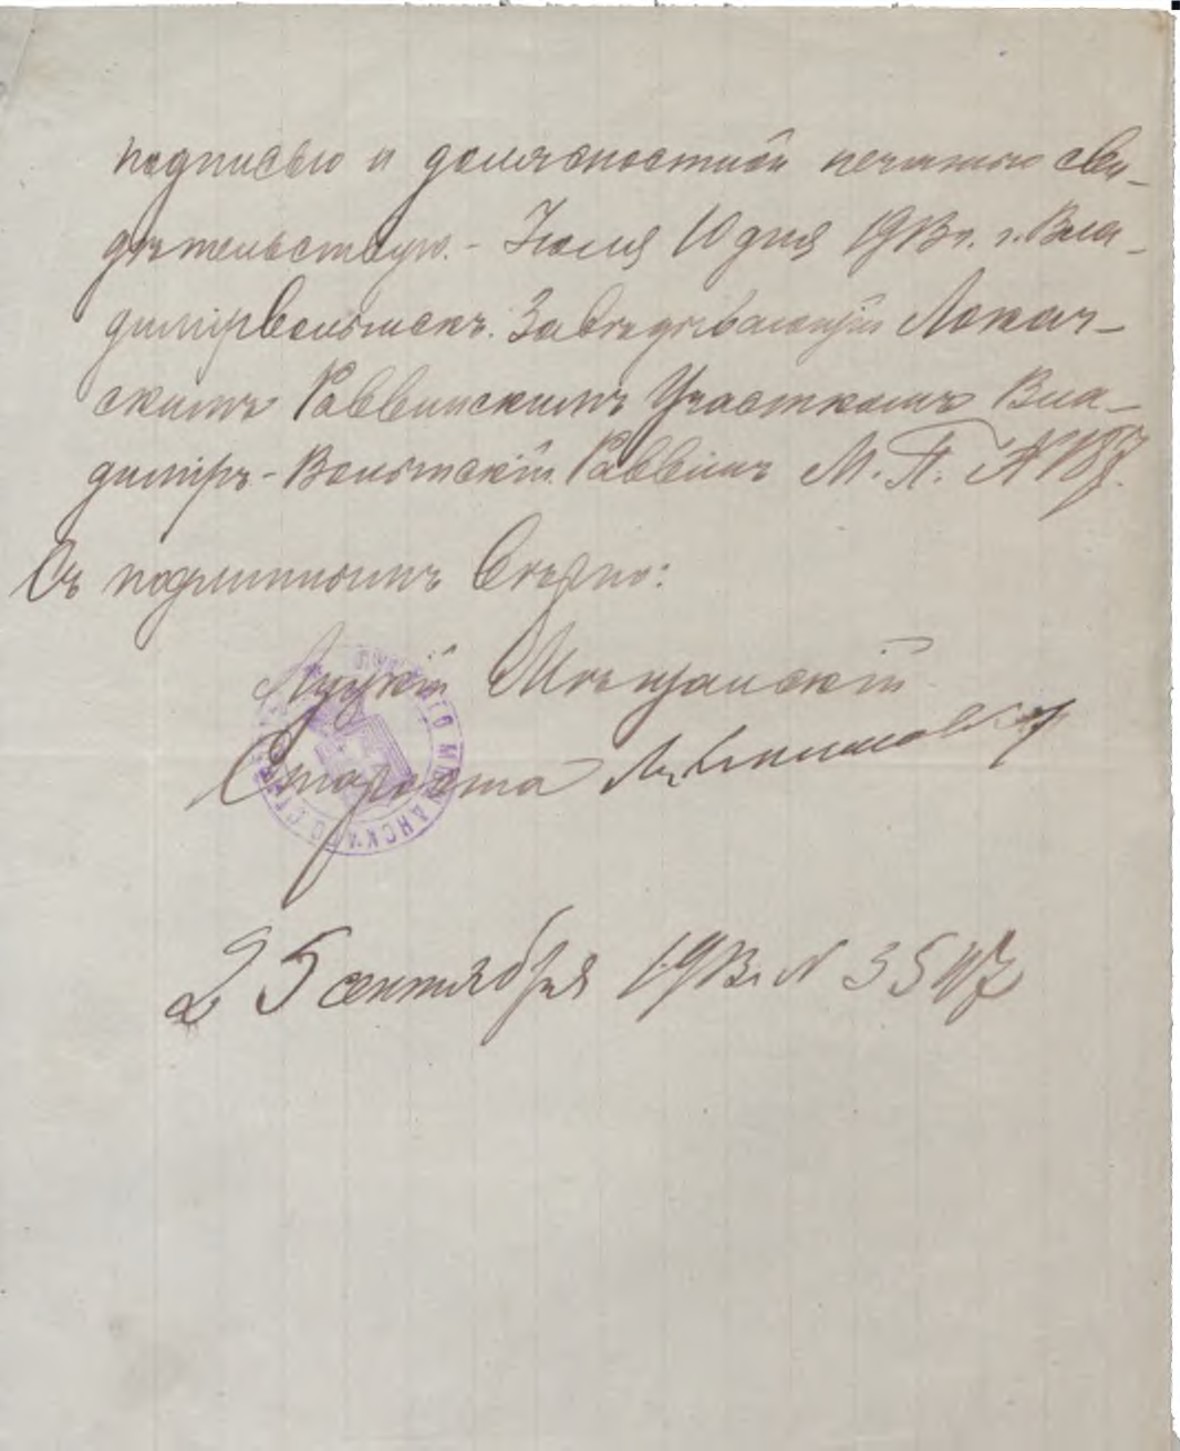 подписью и должностной печатью сви-
дѣтельствую. - Іюля 10 дня 1913 г. г. Вла-
диміръволынскъ. Завѣдывающій Локач-
скимъ Раввинскимъ Участкомъ Вла-
диміръ-Волынскій Раввинъ М. П. № 187.
Съ подлиннымъ вѣрно:
Луцкій Мѣщанскій
Староста
25 сентября 1913 г. № 3547